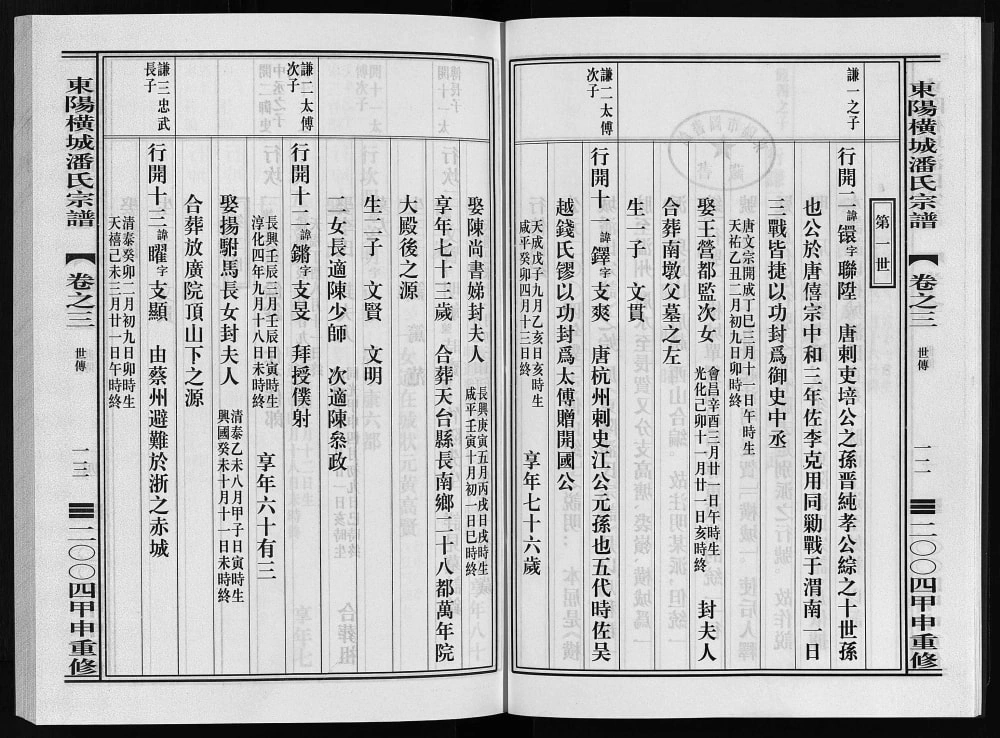 東陽橫城潘氏宗譜
【卷之三
世傳
一二
二〇〇四甲申重修
第一世
謙一之子
行開二諱𨬔字聯陞 唐刺吏培公之孫晋純孝公綜之十世孫
也公於唐僖宗中和三年佐李克用同勦戰于渭南一日
三戰皆捷以功封爲御史中丞
唐文宗開成丁巳三月十一日午時生
天祐乙丑二月初九日卯時終
娶王營都監次女
會昌辛酉三月廿一日午時生
光化己卯十一月廿一日亥時終
封夫人
合葬南墩父墓之左
生一子 文貫
謙二太傅
次子
行開十一諱鐸字支爽 唐杭州刺史江公元孫也五代時佐吴
越錢氏鏐以功封爲太傅贈開國公
天成戊子九月乙亥日亥時生
咸平癸卯四月十三日終
享年七十六歲
娶陳尚書娣封夫人
長興庚寅五月丙戌日戌時生
咸平壬寅十月初一日巳時終
享年七十三歲 合葬天台縣長南鄉二十八都萬年院
大殿後之源
生二子 文賢 文明
一女長適陳少師 次適陳叅政
謙二太傅
次子
行開十二諱鏘字支旻 拜授僕射
長興壬辰三月壬辰日寅時生
淳化四年九月十八日未時終
享年六十有三
娶揚駙馬長女封夫人
清泰乙未八月甲子日寅時生
興國癸未十月十一日未時終
合葬放廣院頂山下之源
謙三忠武
長子
行開十三諱曜字支顯 由蔡州避難於浙之赤城
清泰癸卯二月初九日卯時生
天禧己未三月廿一日午時終
東陽橫城潘氏宗譜
【卷之三
世傳
一三
二〇〇四甲申重修